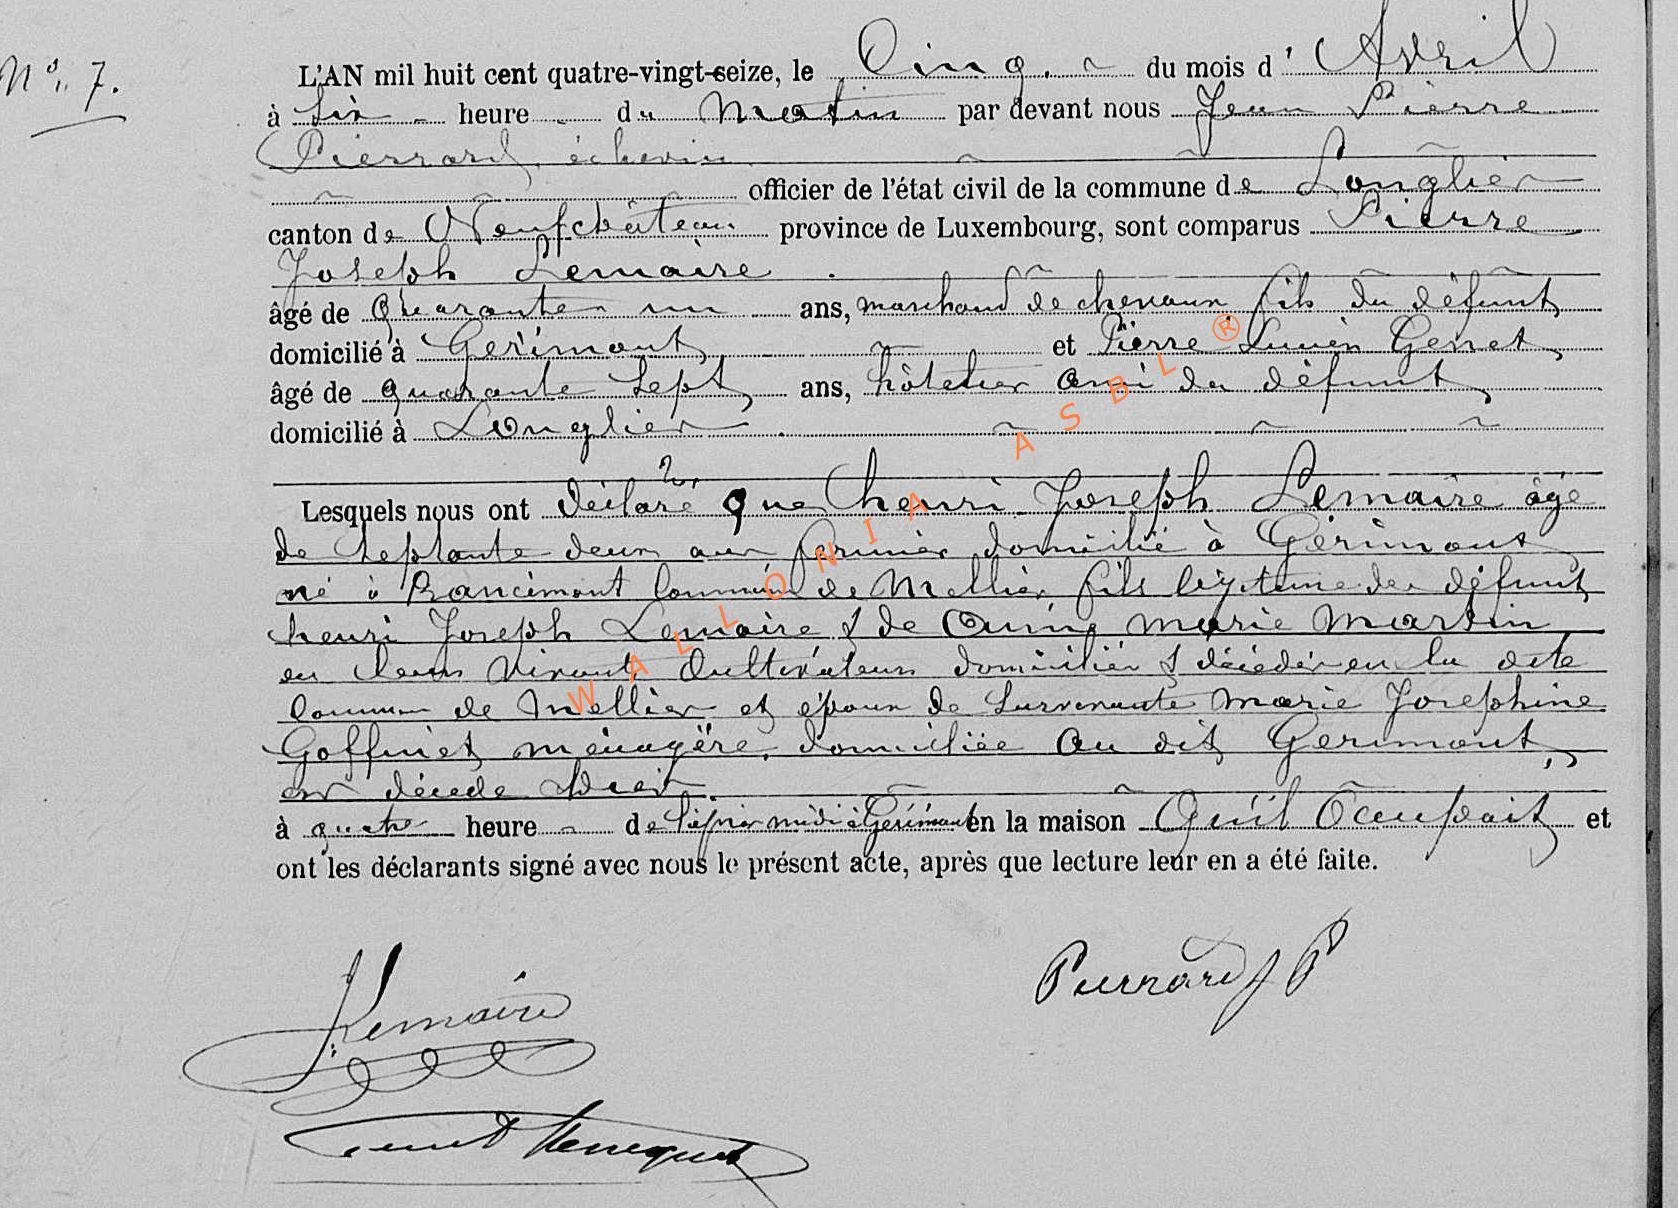 N° 7.
L'AN mil huit cent quatre-vingt-seize, le Cinq du mois d' Avril
à Six heure du Matin par devant nous Jean Pierre
Pierrard, échevin
officier de l'état civil de la commune de Longlier
canton de Neufchâteau province de Luxembourg, sont comparus Pierre
Joseph Lemaire
âgé de Quarante un ans, marchand de chevaux fils du défunt
domicilié à Gérimont et Pierre Lucien Genet
âgé de quarante sept ans, hôtelier ami du défunt
domicilié à Longlier
Lesquels nous ont déclaré que henri Joseph Lemaire âgé
de septante deux ans fermier domicilié à Gérimont
né à Rancimont Commune de Mellier fils légitime des défunts
henri Joseph Lemaire & de Marie Martin
en leurs vivants Cultivateurs domiciliés & décédés en la dite
Commune de Mellier et époux de Survivante Marie Josephine
Goffinet ménagère, domiciliée au dit Gerimont,
est décédé hier
à quatre heure de l'après midi à Gérimont en la maison Qu'il Occupait et
ont les déclarants signé avec nous le présent acte, après que lecture leur en a été faite.
Lemaire
Pierrard J P
Genet
WALLONIA ASBL ®